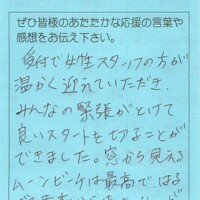 ぜひ皆様のあたたかな応援の言葉や
感想をお伝え下さい。
受付で女性スタッフの方が
温かく迎えていただき、
みんなの緊張がとけて
良いスタートを切ることが
できました。窓から見える
ムーンビーチは最高で、はる